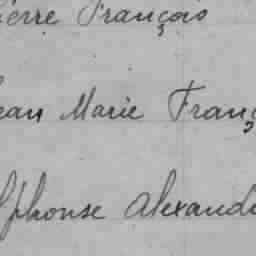 ierre François
ean Marie Franç
lphonse Alexand